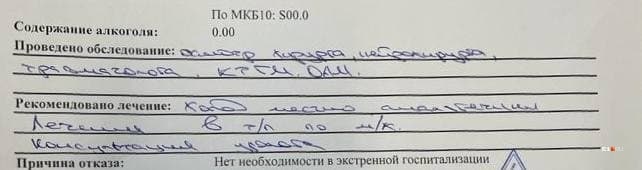 По МКБ10: S00.0
Содержание алкоголя: 0.00
Проведено обследование: осмотр хирурга, нейрохирурга,
травматолога, КТГМ, ОАМ.
Рекомендовано лечение: Холод местно анальгетики
Лечение в т/п по м/ж.
Консультация уролога
Причина отказа: Нет необходимости в экстренной госпитализации